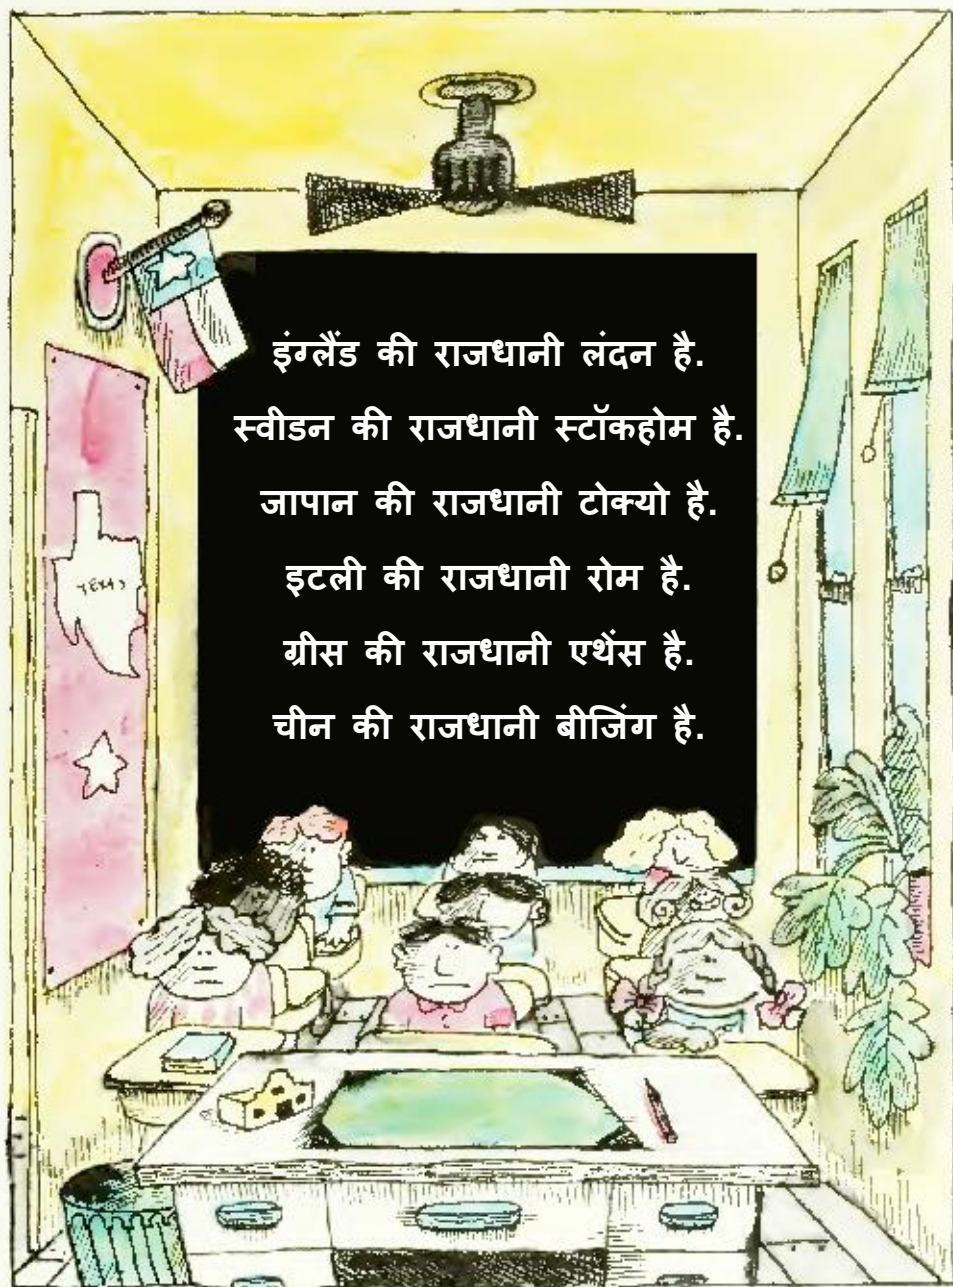 इंग्लैंड की राजधानी लंदन है.
स्वीडन की राजधानी स्टॉकहोम है.
जापान की राजधानी टोक्यो है.
इटली की राजधानी रोम है.
ग्रीस की राजधानी एथेंस है.
चीन की राजधानी बीजिंग है.
TEXAS